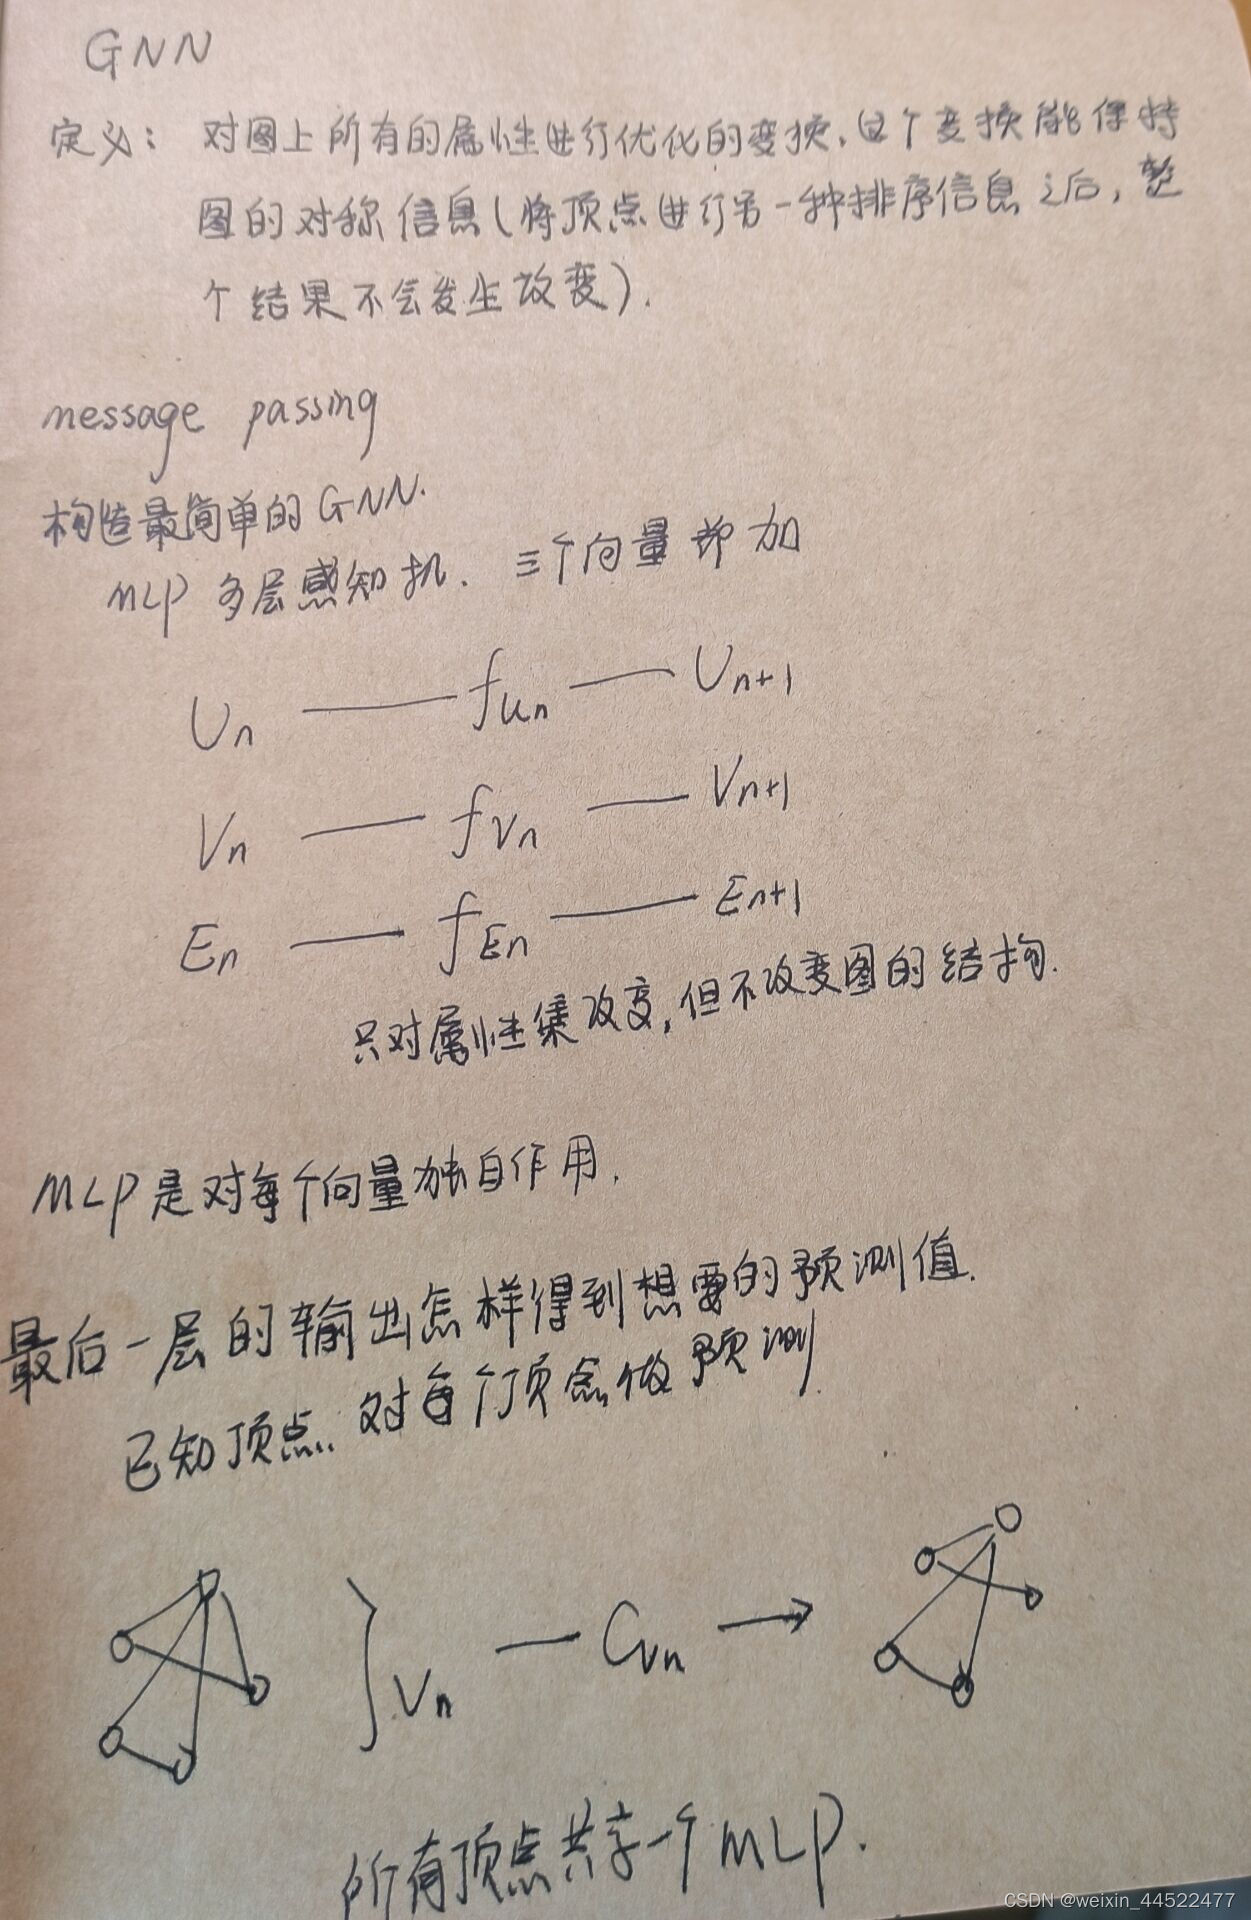 GNN
定义：对图上所有的属性进行优化的变换，这个变换能保持
图的对称信息(将顶点进行另一种排序信息之后，整
个结果不会发生改变).
message passing
构造最简单的GNN.
MLP 多层感知机. 三个向量都加
Un — fUn — Un+1
Vn — fVn — Vn+1
En — fEn — En+1
只对属性集改变,但不改变图的结构.
MLP是对每个向量独自作用.
最后一层的输出怎样得到想要的预测值.
已知顶点. 对每个顶点做预测.
}Vn — CVn →
所有顶点共享一个MLP.
CSDN @weixin_44522477